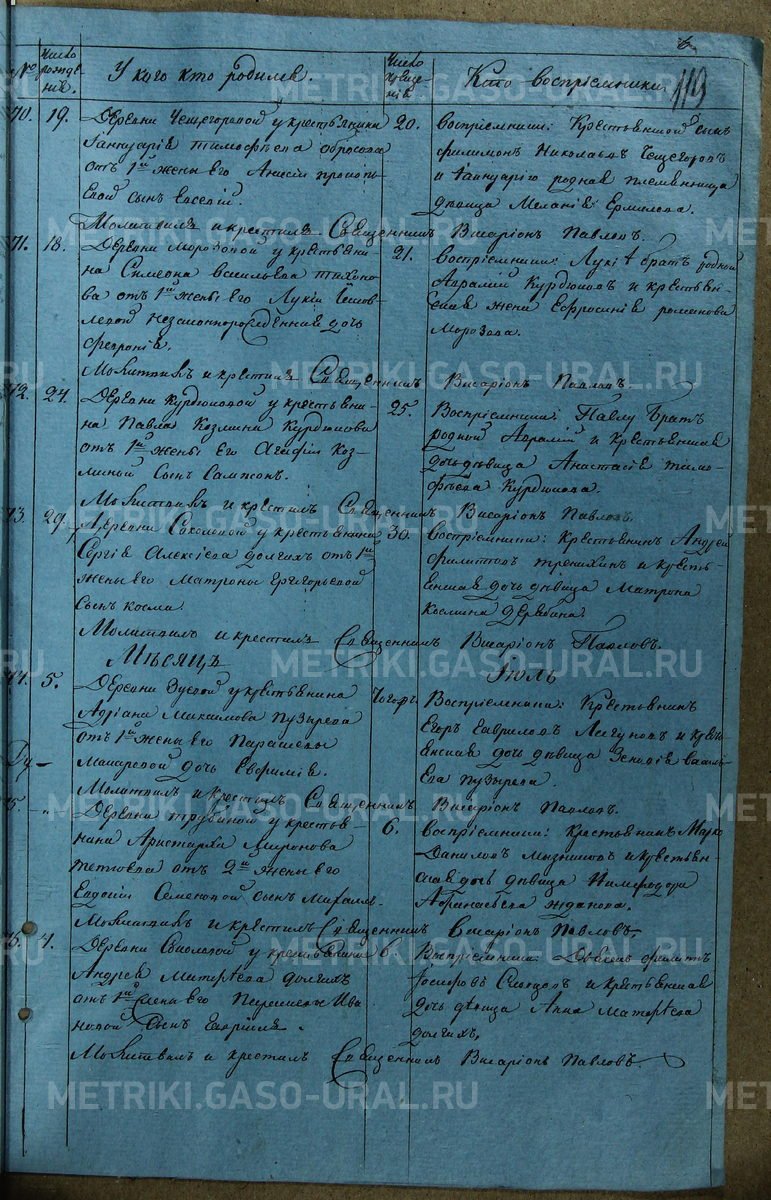 119
№
Число рожде нія.
У кого кто родился.
Число креще нія
Кто воспріемники
70. 19.
Деревни Чещегоровой у крестьянина
Іаннуарія Тимофѣева
отъ 1й жены его Анисіи
сынъ Евсевій.
20.
воспріемники: Крестьянской сынъ
Филимонъ Николаевъ Чещегоровъ
и Іаннуарію родная племянница
дѣвица Меланія Ермилова.
Молитвилъ и крестилъ Священникъ Висаріонъ Павловъ.
71. 18.
Деревни Морозовой у крестьяни-
на Симеона Васильева Тихоно-
ва отъ 1й жены его Лукіи
незаконнорожденная дочь
Февронія.
21.
воспріемники: Лукіѣ братъ родной
Аврамій Курдюковъ и крестьян-
ская жена Ефросинія Романова
Морозова.
Молитвилъ и крестилъ Священникъ Висаріонъ Павловъ.
72. 24.
Деревни Курдюковой у крестьяни-
на Павла Козмина Курдюкова
отъ 1й жены его Агафіи Коз-
миной сынъ Сампсонъ.
25.
Воспріемники: Павлу братъ
родной Аврамій и Крестьянская
дочь дѣвица Анастасія Тимо-
фѣева Курдюкова.
Молитвилъ и крестилъ Священникъ Висаріонъ Павловъ.
73. 29.
Деревни Соколовой у крестьянина
Сергія Алексіева Долгихъ отъ 1й
жены его Матроны Григорьевой
сынъ Косма
30.
воспріемники: Крестьянинъ Андрей
Филиповъ и кресть-
янская дочь дѣвица Матрона
Космина Дерябина.
Молитвилъ и крестилъ Священникъ Висаріонъ Павловъ.
Мѣсяцъ Іюль
74. 5.
Деревни Зуевой у крестьянина
Адріана Михаилова Пузырева
отъ 1й жены его Парасковьи
Макаровой дочь Евфимія.
Тогожъ.
Воспріемники: Крестьянинъ
Егоръ Гавриловъ Лягуновъ и крест-
янская дочь дѣвица Зеновія Василь-
ева Пузырева.
Молитвилъ и крестилъ Священникъ Висаріонъ Павловъ.
75. "
Деревни Трубиной у крестья-
нина Аристарха Миронова
отъ 2й жены его
Евдокіи Семеновой сынъ Михаилъ.
6.
воспріемники: крестьянинъ Марко
Даниловъ и крестьян-
ская дочь дѣвица Нимфодора
Афанасьева Жданова.
Молитвилъ и крестилъ Священникъ Висаріонъ Павловъ.
Деревни Соколовой у крестьянина
Андрея Матвѣева Долгихъ
отъ 1й жены его Парасковьи Ива
новой сынъ Гавріилъ.
6.
Воспріемники:
и крестьянская
дочь дѣвица Анна Матвѣева
Долгихъ.
Молитвилъ и крестилъ Священникъ Висаріонъ Павловъ.
METRIKI.GASO-URAL.RU